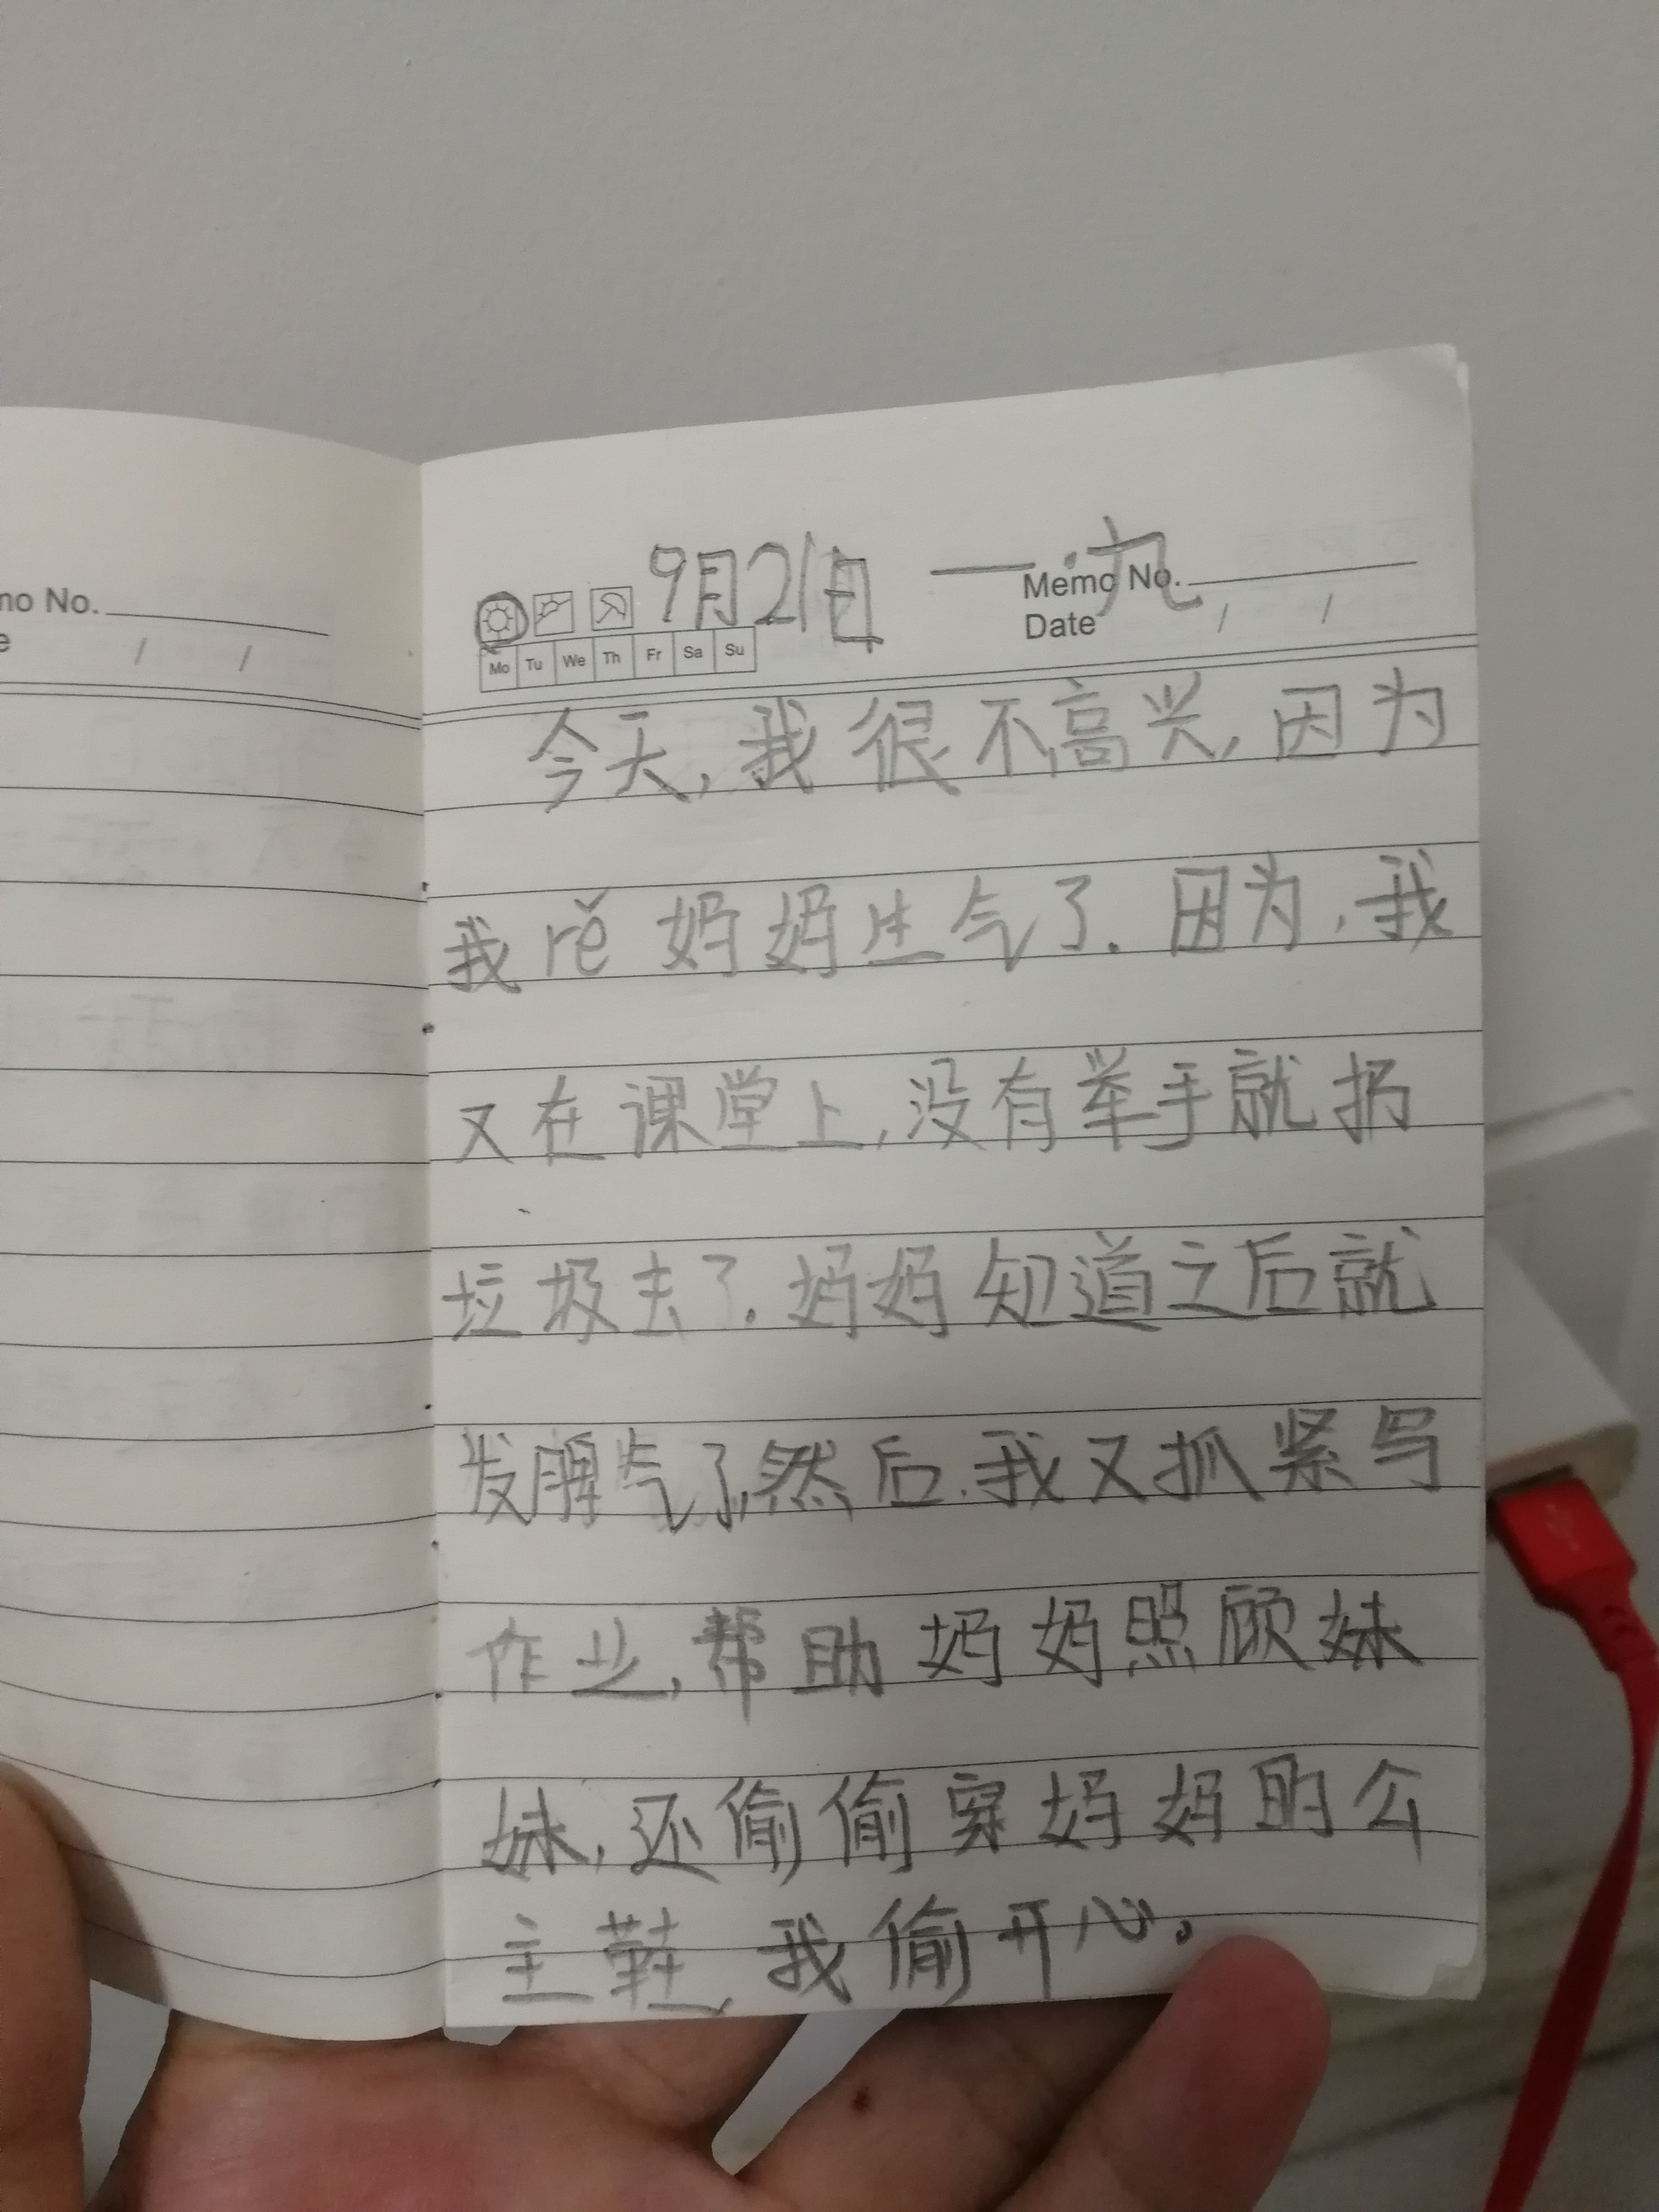 no No.
/ /
9月21日 一.九
Memo No.
Mo Tu We Th Fr Sa Su
Date / /
今天,我很不高兴,因为
我rě妈妈生气了.因为,我
又在课堂上,没有举手就扔
垃圾去了.妈妈知道之后就
发脾气了,然后.我又抓紧写
作业,帮助妈妈照顾妹
妹,还偷偷穿妈妈的公
主鞋,我偷开心。